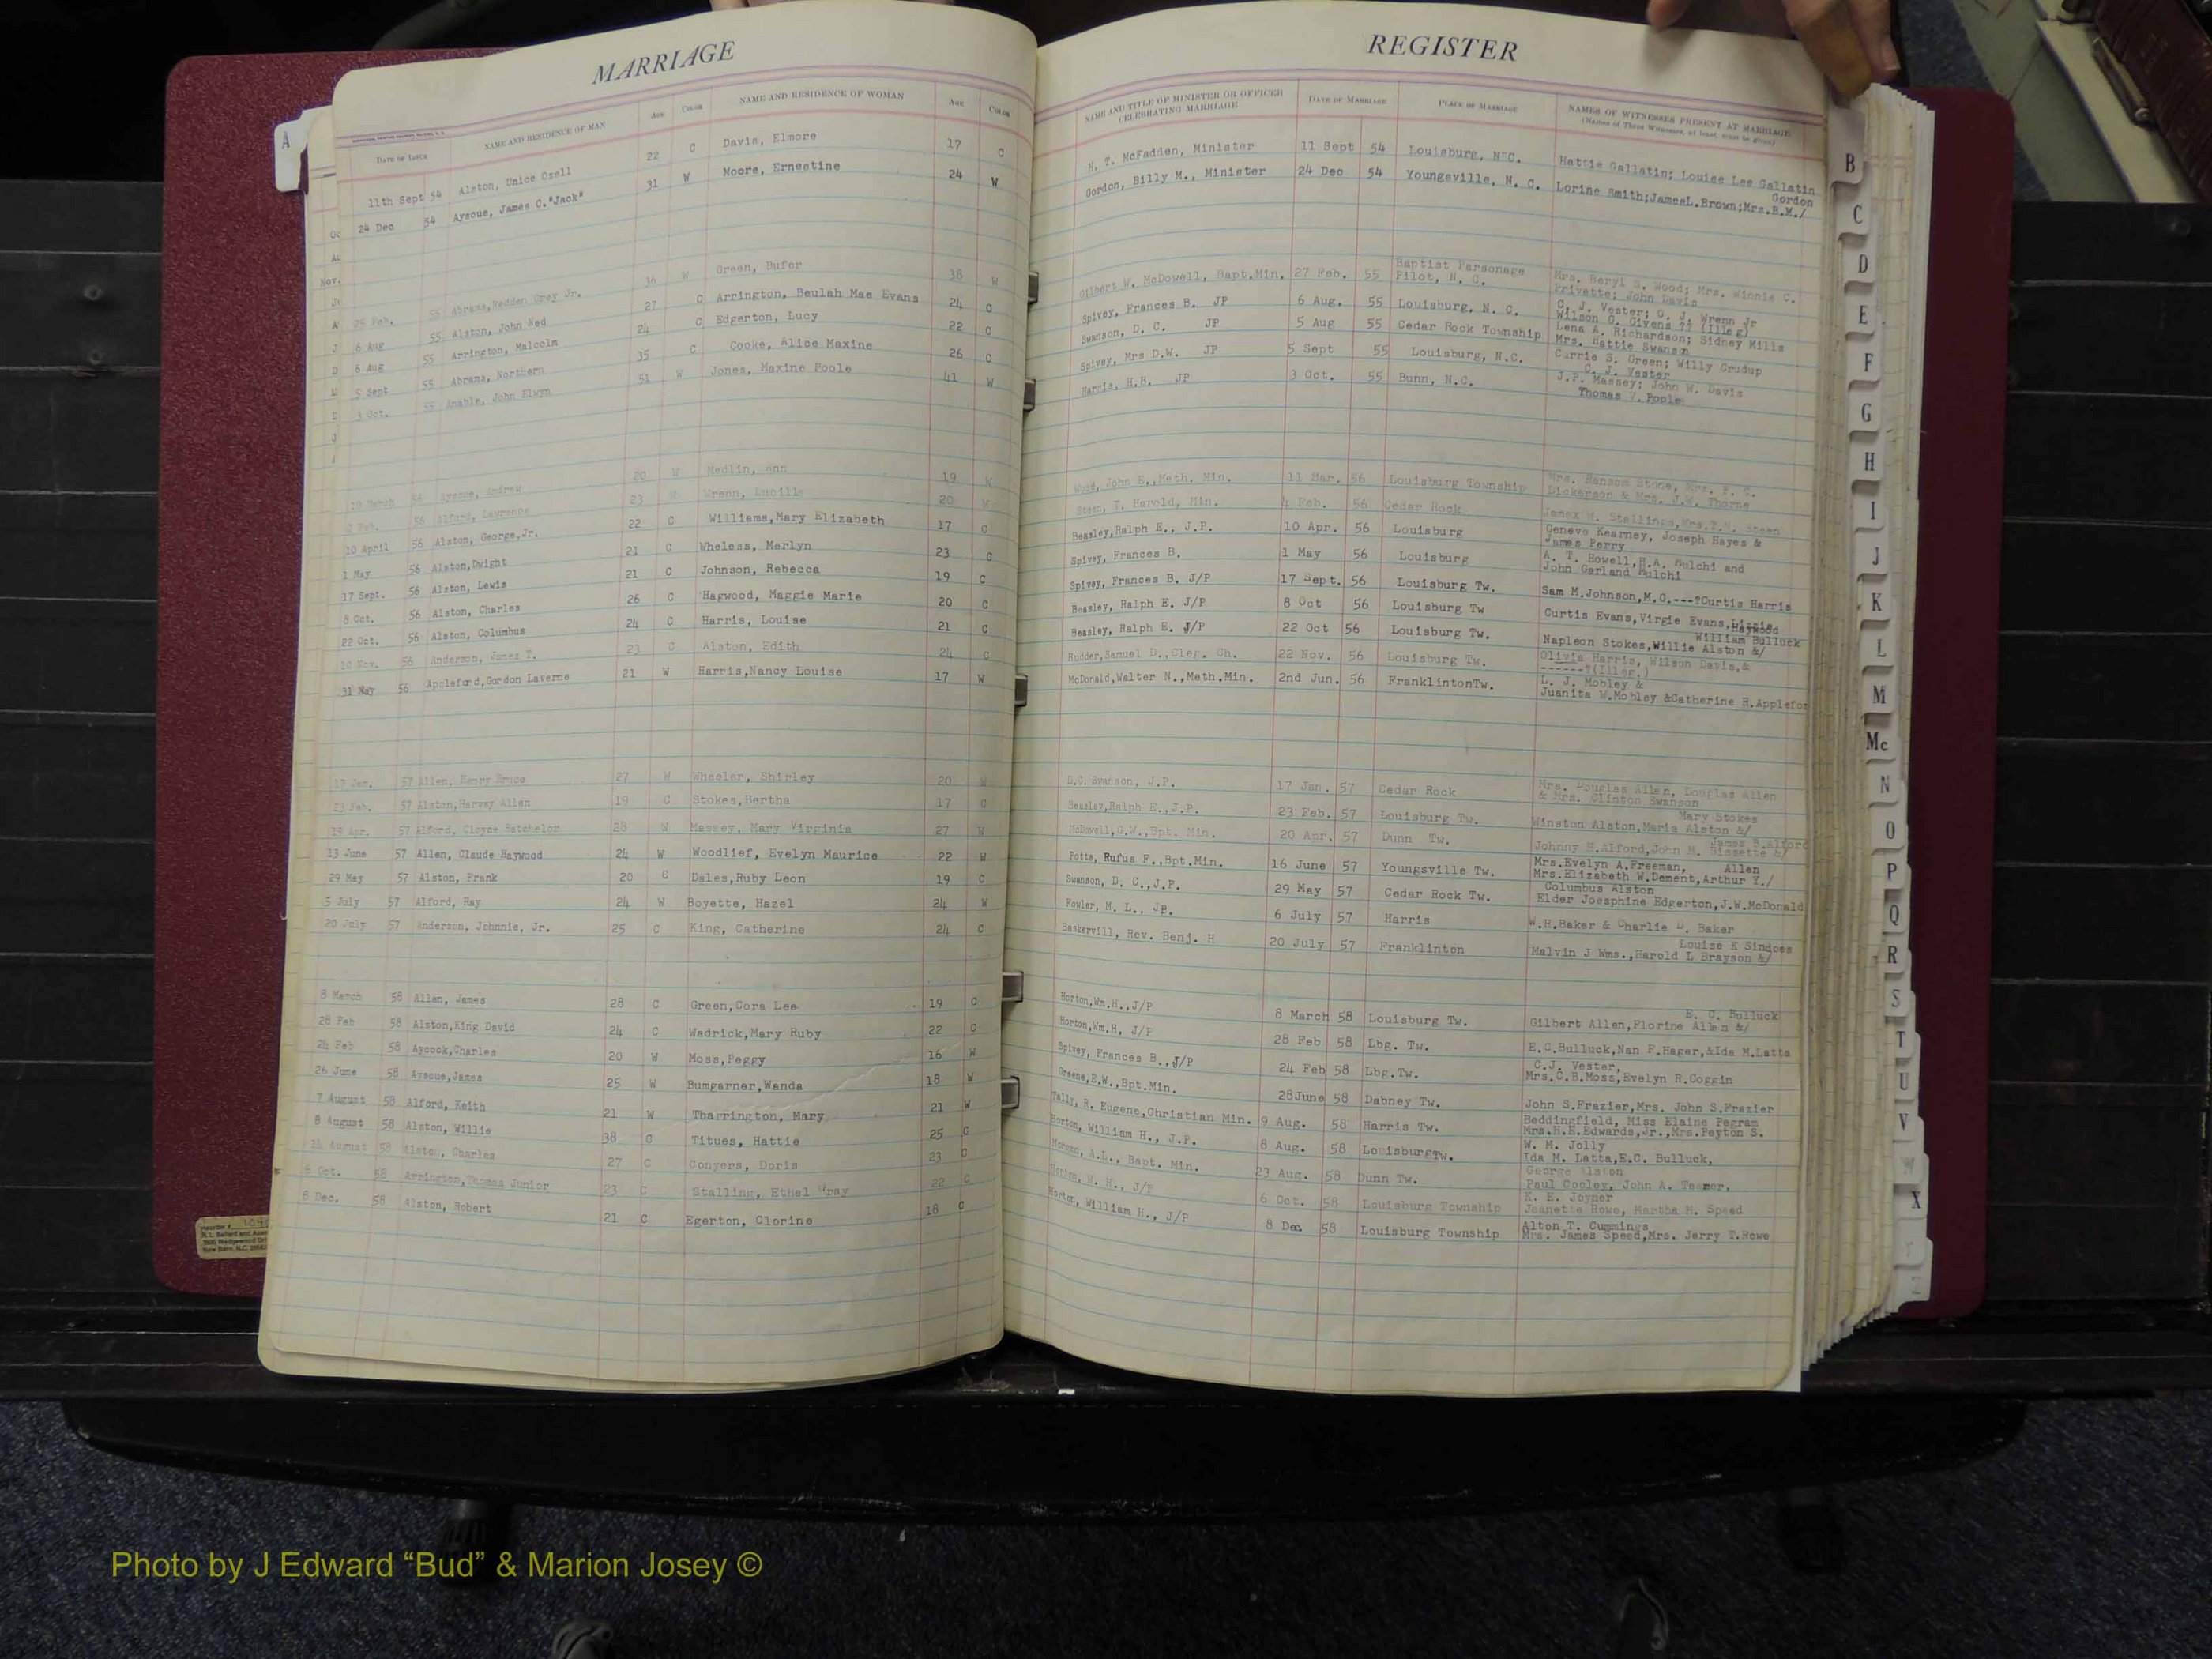 MARRIAGE
DATE OF ISSUE NAME AND RESIDENCE OF MAN AGE COLOR NAME AND RESIDENCE OF WOMAN AGE COLOR
11th Sept 54 Alston, Unice Ozell 22 C Davis, Elmore 17 C
24 Dec 54 Ayscue, James C."Jack" 31 W Moore, Ernestine 24 W
25 Feb. 55 Abrams,Redden Grey Jr. 36 W Green, Bufer 38 W
6 Aug 55 Alston, John Ned 27 C Arrington, Beulah Mae Evans 24 C
6 Aug 55 Arrington, Malcolm 24 C Edgerton, Lucy 22 C
5 Sept 55 Abrams, Northern 35 C Cooke, Alice Maxine 26 C
Oct. 55 Anable, John Elwyn 51 W Jones, Maxine Poole 41 W
10 March 56 Ayscue, Andrew 20 W Medlin, Ann 19 W
Feb. 56 Alford, Lawrence 23 W Wrenn, Lucille 20 W
10 April 56 Alston, George,Jr. 22 C Williams,Mary Elizabeth 17 C
1 May 56 Alston,Dwight 21 C Wheless, Merlyn 23 C
17 Sept. 56 Alston, Lewis 21 C Johnson, Rebecca 19 C
8 Oct. 56 Alston, Charles 26 C Hagwood, Maggie Marie 20 C
22 Oct. 56 Alston, Columbus 24 C Harris, Louise 21 C
20 Nov. 56 Anderson, James T. 23 C Alston, Edith 24 C
31 May 56 Appleford,Gordon Laverne 21 W Harris,Nancy Louise 17 W
17 Jan. 57 Allen, Henry Bruce 27 W Wheeler, Shirley 20 W
23 Feb. 57 Alston,Harvey Allen 19 C Stokes,Bertha 17 C
19 Apr. 57 Alford, Cloyce Batchelor 28 W Massey, Mary Virginia 27 W
13 June 57 Allen, Claude Haywood 24 W Woodlief, Evelyn Maurice 22 W
29 May 57 Alston, Frank 20 C Dales,Ruby Leon 19 C
5 July 57 Alford, Ray 24 W Boyette, Hazel 24 W
20 July 57 Anderson, Johnnie, Jr. 25 C King, Catherine 24 C
8 March 58 Allen, James 28 C Green,Cora Lee 19 C
28 Feb 58 Alston,King David 24 C Wadrick,Mary Ruby 22 C
24 Feb 58 Aycock,Charles 20 W Moss,Peggy 16 W
26 June 58 Ayscue,James 25 W Bumgarner,Wanda 18 W
7 August 58 Alford, Keith 21 W Tharrington, Mary 21 W
8 August 58 Alston, Willie 38 C Titues, Hattie 25 C
August 58 Alston, Charles 27 C Conyers, Doris 23 C
6 Oct. 58 Arrington,Thomas Junior 23 C Stalling, Ethel Gray 22 C
8 Dec. 58 Alston, Robert 21 C Egerton, Clorine 18 C
REGISTER
NAME AND TITLE OF MINISTER OR OFFICER CELEBRATING MARRIAGE DATE OF MARRIAGE PLACE OF MARRIAGE NAMES OF WITNESSES PRESENT AT MARRIAGE
(Names of Three Witnesses, at least, must be given)
N. T. McFadden, Minister 11 Sept 54 Louisburg, N"C. Hattie Gallatin; Louise Lee Gallatin
Gordon, Billy M., Minister 24 Dec 54 Youngsville, N. C. Lorine Smith;JamesL.Brown;Mrs.B.M./ Gordon
Gilbert W. McDowell, Bapt.Min. 27 Feb. 55 Baptist Parsonage Pilot, N. C. Mrs. Beryl S. Wood; Mrs. Winnie C. Privette; John Davis
Spivey, Frances B. JP 6 Aug. 55 Louisburg, N. C. C. J. Vester; O. J. Wrenn Jr
Wilson G. Givens ?? (Illeg)
Swanson, D. C. JP 5 Aug 55 Cedar Rock Township Lena A. Richardson; Sidney Mills
Mrs. Hattie Swanson
Spivey, Mrs D.W. JP 5 Sept 55 Louisburg, N.C. Carrie S. Green; Willy Crudup
C. J. Vester
Harris, H.H. JP 3 Oct. 55 Bunn, N.C. J.P. Massey; John W. Davis
Thomas V. Poole
Wood, John E.,Meth. Min. 11 Mar. 56 Louisburg Township Mrs. Hansom Stone, Mrs. F. C.
Dickerson & Mrs. J.W. Thorne
Steen, T. Harold, Min. 4 Feb. 56 Cedar Rock James W. Stallings,Mrs.T.H. Steen
Beasley,Ralph E., J.P. 10 Apr. 56 Louisburg Geneve Kearney, Joseph Hayes &
James Perry
Spivey, Frances B. 1 May 56 Louisburg A. T. Howell,H.A. Mulchi and
John Garland Mulchi
Spivey, Frances B. J/P 17 Sept. 56 Louisburg Tw. Sam M.Johnson,M.C.---?Curtis Harris
Beasley, Ralph E. J/P 8 Oct 56 Louisburg Tw Curtis Evans,Virgie Evans,Lizzie Haywood
Beasley, Ralph E. J/P 22 Oct 56 Louisburg Tw. William Bulluck
Napleon Stokes,Willie Alston &/
Rudder,Samuel D.,Cleg. Ch. 22 Nov. 56 Louisburg Tw. Olivia Harris, Wilson Davis,&
------?(Illeg.)
McDonald,Walter N.,Meth.Min. 2nd Jun. 56 FranklintonTw. L. J. Mobley &
Juanita W.Mobley &Catherine H.Applefor
D.C. Swanson, J.P. 17 Jan. 57 Cedar Rock Mrs. Douglas Allen, Douglas Allen
& Mrs. Clinton Swanson
Beasley,Ralph E.,J.P. 23 Feb. 57 Louisburg Tw. Mary Stokes
Winston Alston,Marie Alston &/
McDowell,G.W.,Bpt. Min. 20 Apr. 57 Dunn Tw. James B.Alford
Johnny H.Alford,John M. Bissette &/
Potts, Rufus F.,Bpt.Min. 16 June 57 Youngsville Tw. Mrs.Evelyn A.Freeman, Allen
Mrs.Elizabeth W.Dement,Arthur Y./
Swanson, D. C.,J.P. 29 May 57 Cedar Rock Tw. Columbus Alston
Elder Joesphine Edgerton,J.W.McDonald
Fowler, M. L., JP. 6 July 57 Harris W.H.Baker & Charlie D. Baker
Baskervill, Rev. Benj. H 20 July 57 Franklinton Louise K Sindoes
Malvin J Wms.,Harold L Brayson &/
Horton,Wm.H.,J/P 8 March 58 Louisburg Tw. E. C. Bulluck
Gilbert Allen,Florine Allen &/
Horton,Wm.H, J/P 28 Feb 58 Lbg. Tw. E.C.Bulluck,Nan F.Hager,&Ida M.Latta
Spivey, Frances B.,J/P 24 Feb 58 Lbg.Tw. C.J. Vester,
Mrs.C.B.Moss,Evelyn R.Coggin
Greene,E.W.,Bpt.Min. 28June 58 Dabney Tw. John S.Frazier,Mrs. John S.Frazier
Tally, R. Eugene,Christian Min. 9 Aug. 58 Harris Tw. Beddingfield, Miss Elaine Pegram
Mrs.H.E.Edwards,Jr.,Mrs.Peyton S.
Horton, William H., J.P. 8 Aug. 58 LouisburgTw. W. M. Jolly
Ida M. Latta,E.C. Bulluck,
Morgan, A.L., Bapt. Min. 23 Aug. 58 Dunn Tw. George Alston
Paul Cooley, John A. Teamer,
Horton, W. H., J/P 6 Oct. 58 Louisburg Township K. E. Joyner
Jeanette Rowe, Martha M. Speed
Horton, William H., J/P 8 Dec. 58 Louisburg Township Alton T. Cummings
Mrs. James Speed,Mrs. Jerry T.Rowe
A
B
C
D
E
F
G
H
I
J
K
L
M
Mc
N
O
P
Q
R
S
T
U
V
W
X
Y
Z
Photo by J Edward “Bud” & Marion Josey ©